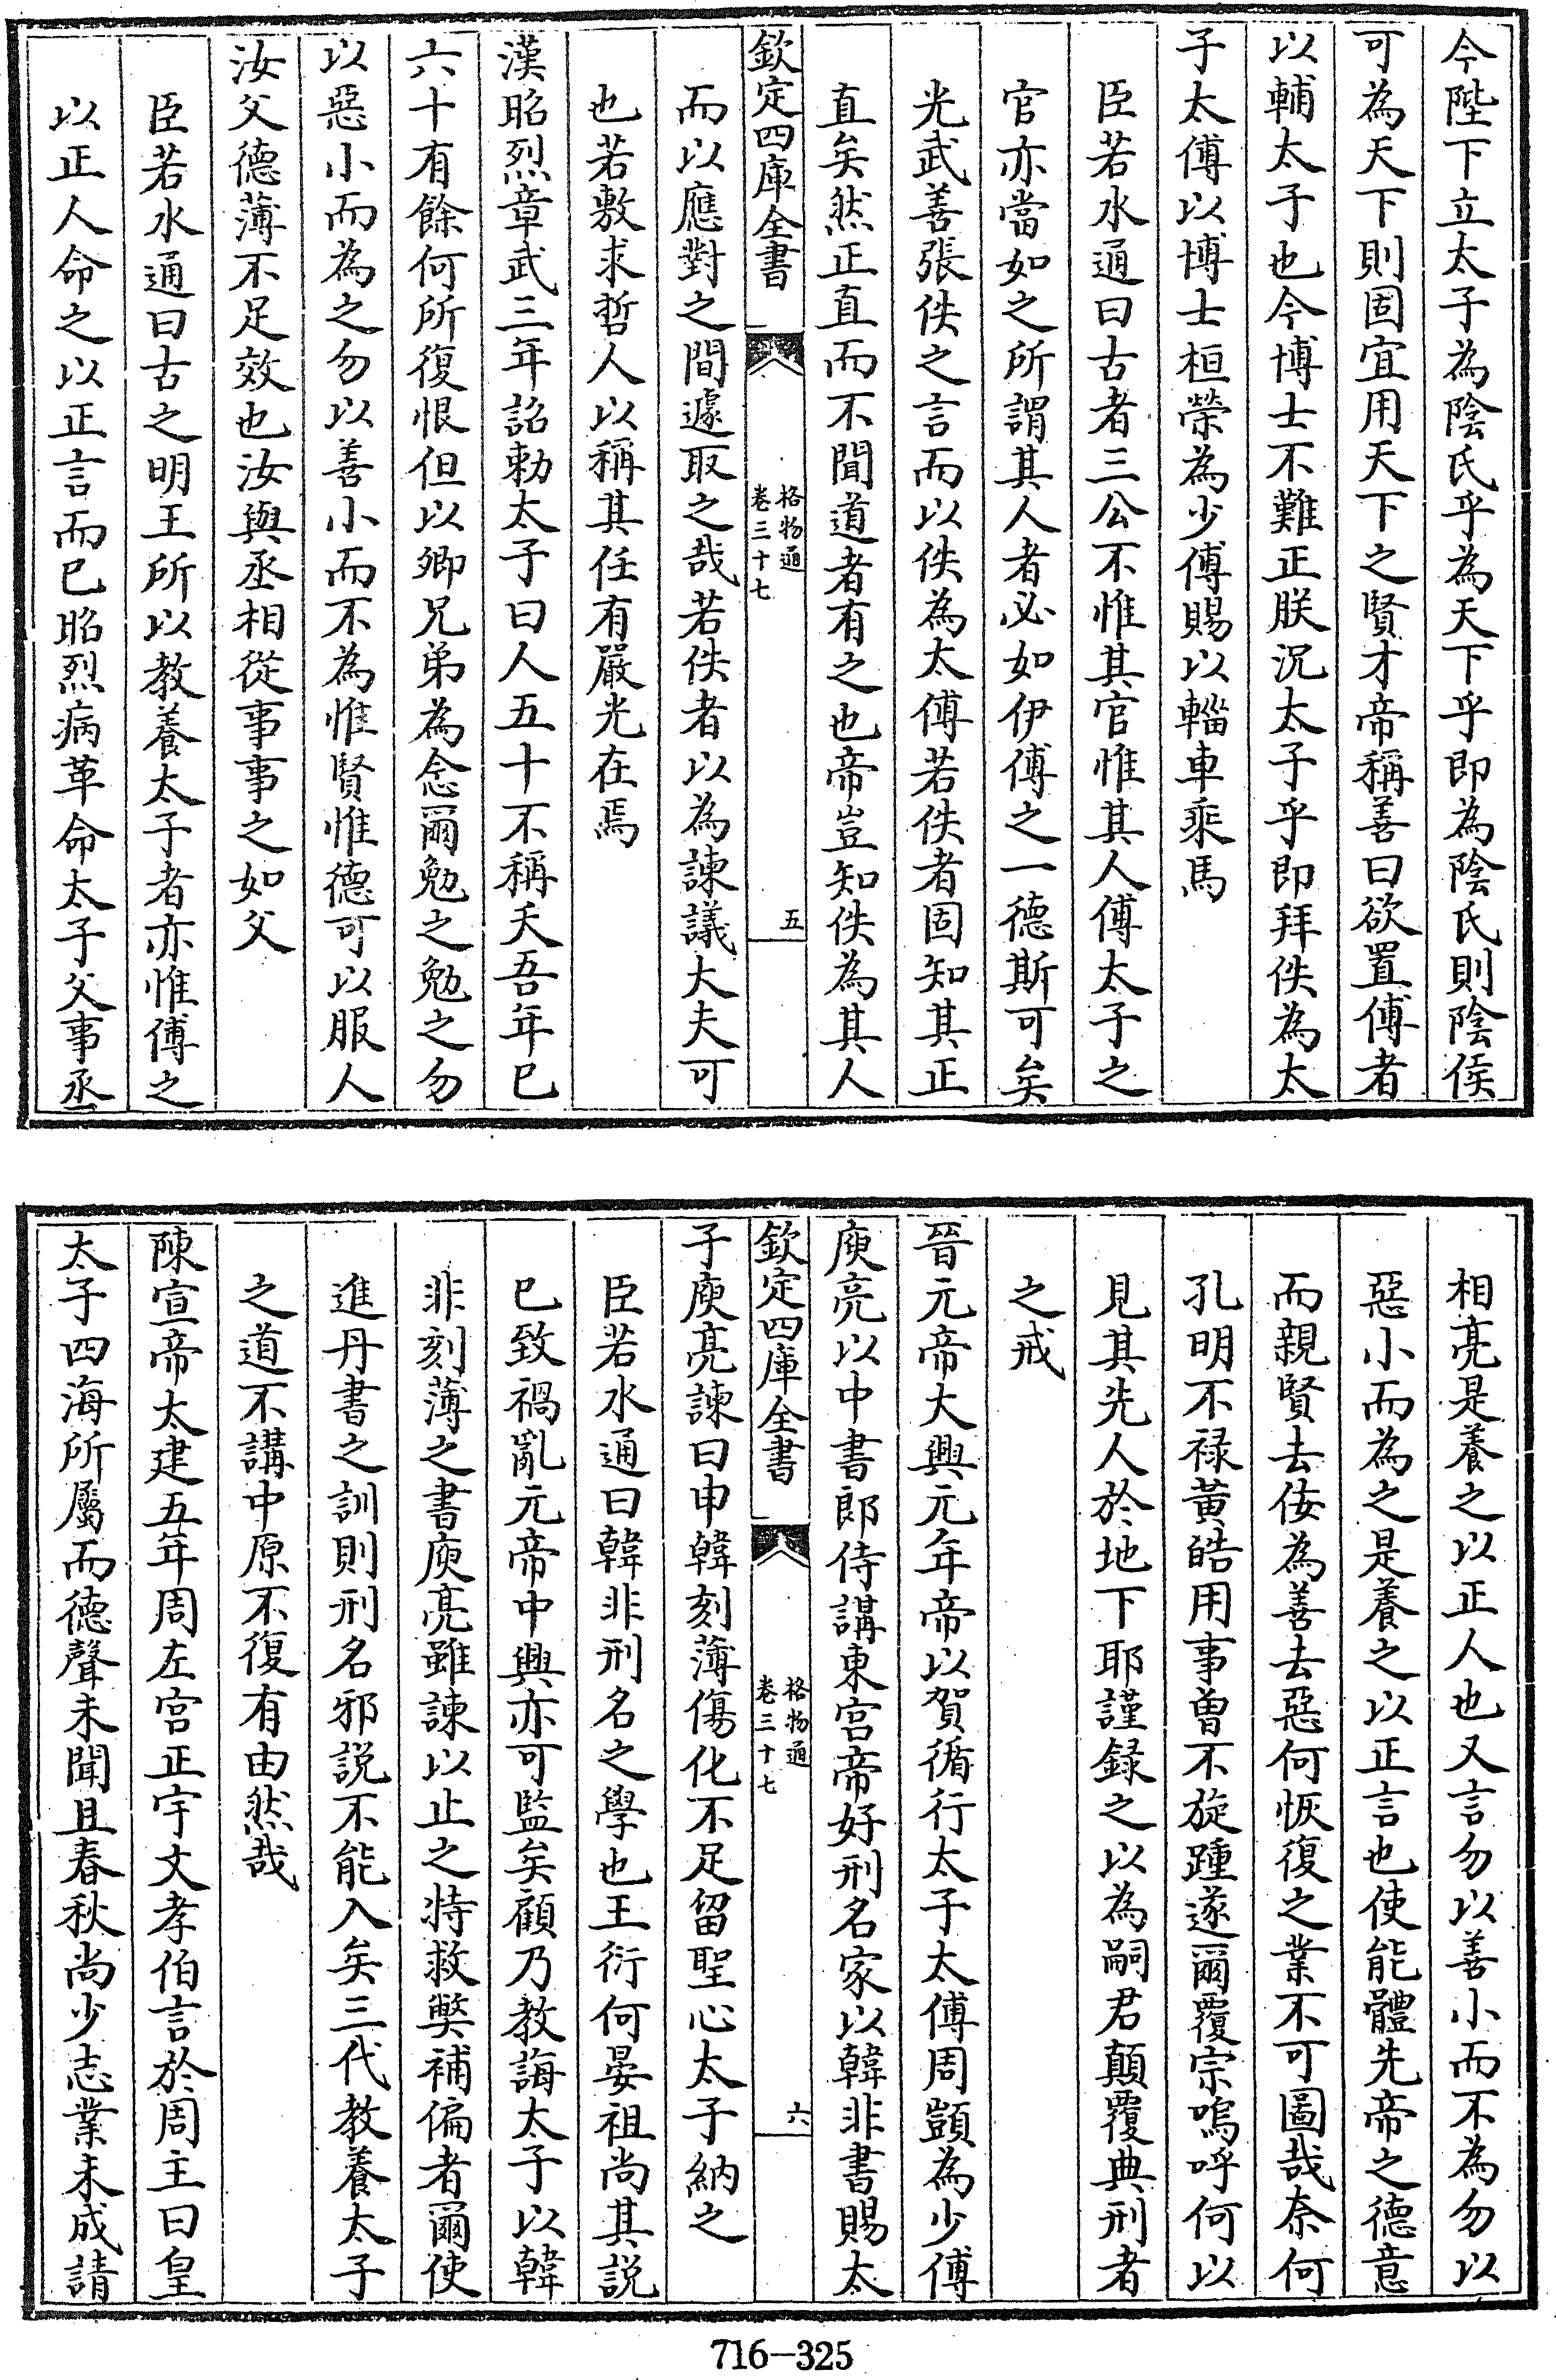 今陛下立太子為陰氏乎為天下乎即為陰氏則陰侯
可為天下則固宜用天下之賢才帝稱善曰欲置傅者
以輔太子也今博士不難正朕况太子乎即拜佚為太
子太傅以博士桓榮為少傅賜以輜車乘馬
臣若水通曰古者三公不惟其官惟其人傅太子之
官亦當如之所謂其人者必如伊傅之一德斯可矣
光武善張佚之言而以佚為太傅若佚者固知其正
直矣然正直而不聞道者有之也帝豈知佚為其人
欽定四庫全書
格物通
卷三十七
五
而以應對之間遽取之哉若佚者以為諫議大夫可
也若敷求哲人以稱其任有嚴光在焉
漢昭烈章武三年詔勅太子曰人五十不稱夭吾年已
六十有餘何所復恨但以卿兄弟為念爾勉之勉之勿
以惡小而為之勿以善小而不為惟賢惟德可以服人
汝父德薄不足效也汝與丞相從事事之如父
臣若水通曰古之明王所以教養太子者亦惟傅之
以正人命之以正言而已昭烈病革命太子父事丞
相亮是養之以正人也又言勿以善小而不為勿以
惡小而為之是養之以正言也使能體先帝之德意
而親賢去佞為善去惡何恢復之業不可圖哉奈何
孔明不禄黃皓用事曾不旋踵遂爾覆宗嗚呼何以
見其先人於地下耶謹録之以為嗣君顛覆典刑者
之戒
晉元帝大興元年帝以賀循行太子太傅周顗為少傅
庾亮以中書郎侍講東宮帝好刑名家以韓非書賜太
欽定四庫全書
格物通
卷三十七
六
子庾亮諫曰申韓刻薄傷化不足留聖心太子納之
臣若水通曰韓非刑名之學也王衍何晏祖尚其說
已致禍亂元帝中興亦可監矣顧乃教誨太子以韓
非刻薄之書庾亮雖諫以止之特救獘補偏者爾使
進丹書之訓則刑名邪説不能入矣三代教養太子
之道不講中原不復有由然哉
陳宣帝太建五年周左宫正宇文孝伯言於周主曰皇
太子四海所屬而德聲未聞且春秋尚少志業未成請
716-325